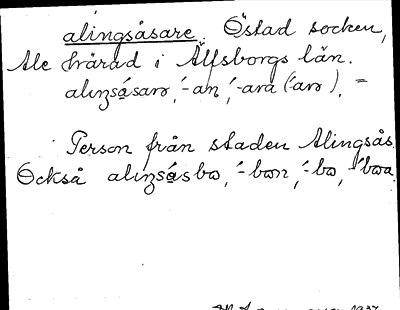 alingsåsare. Östad socken,
Ale härad i Älfsborgs län.
alıŋsåsarə, ´-an, ´-ara (´-arə). =
Person från staden Alingsås.
Också alıŋsåsbo, ´-bon, ´-bo, ´-boa.
1937